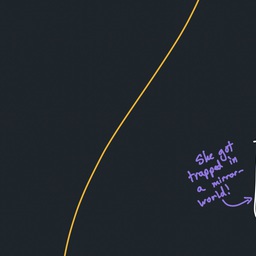 She got
trapped in
a mirror-
world!